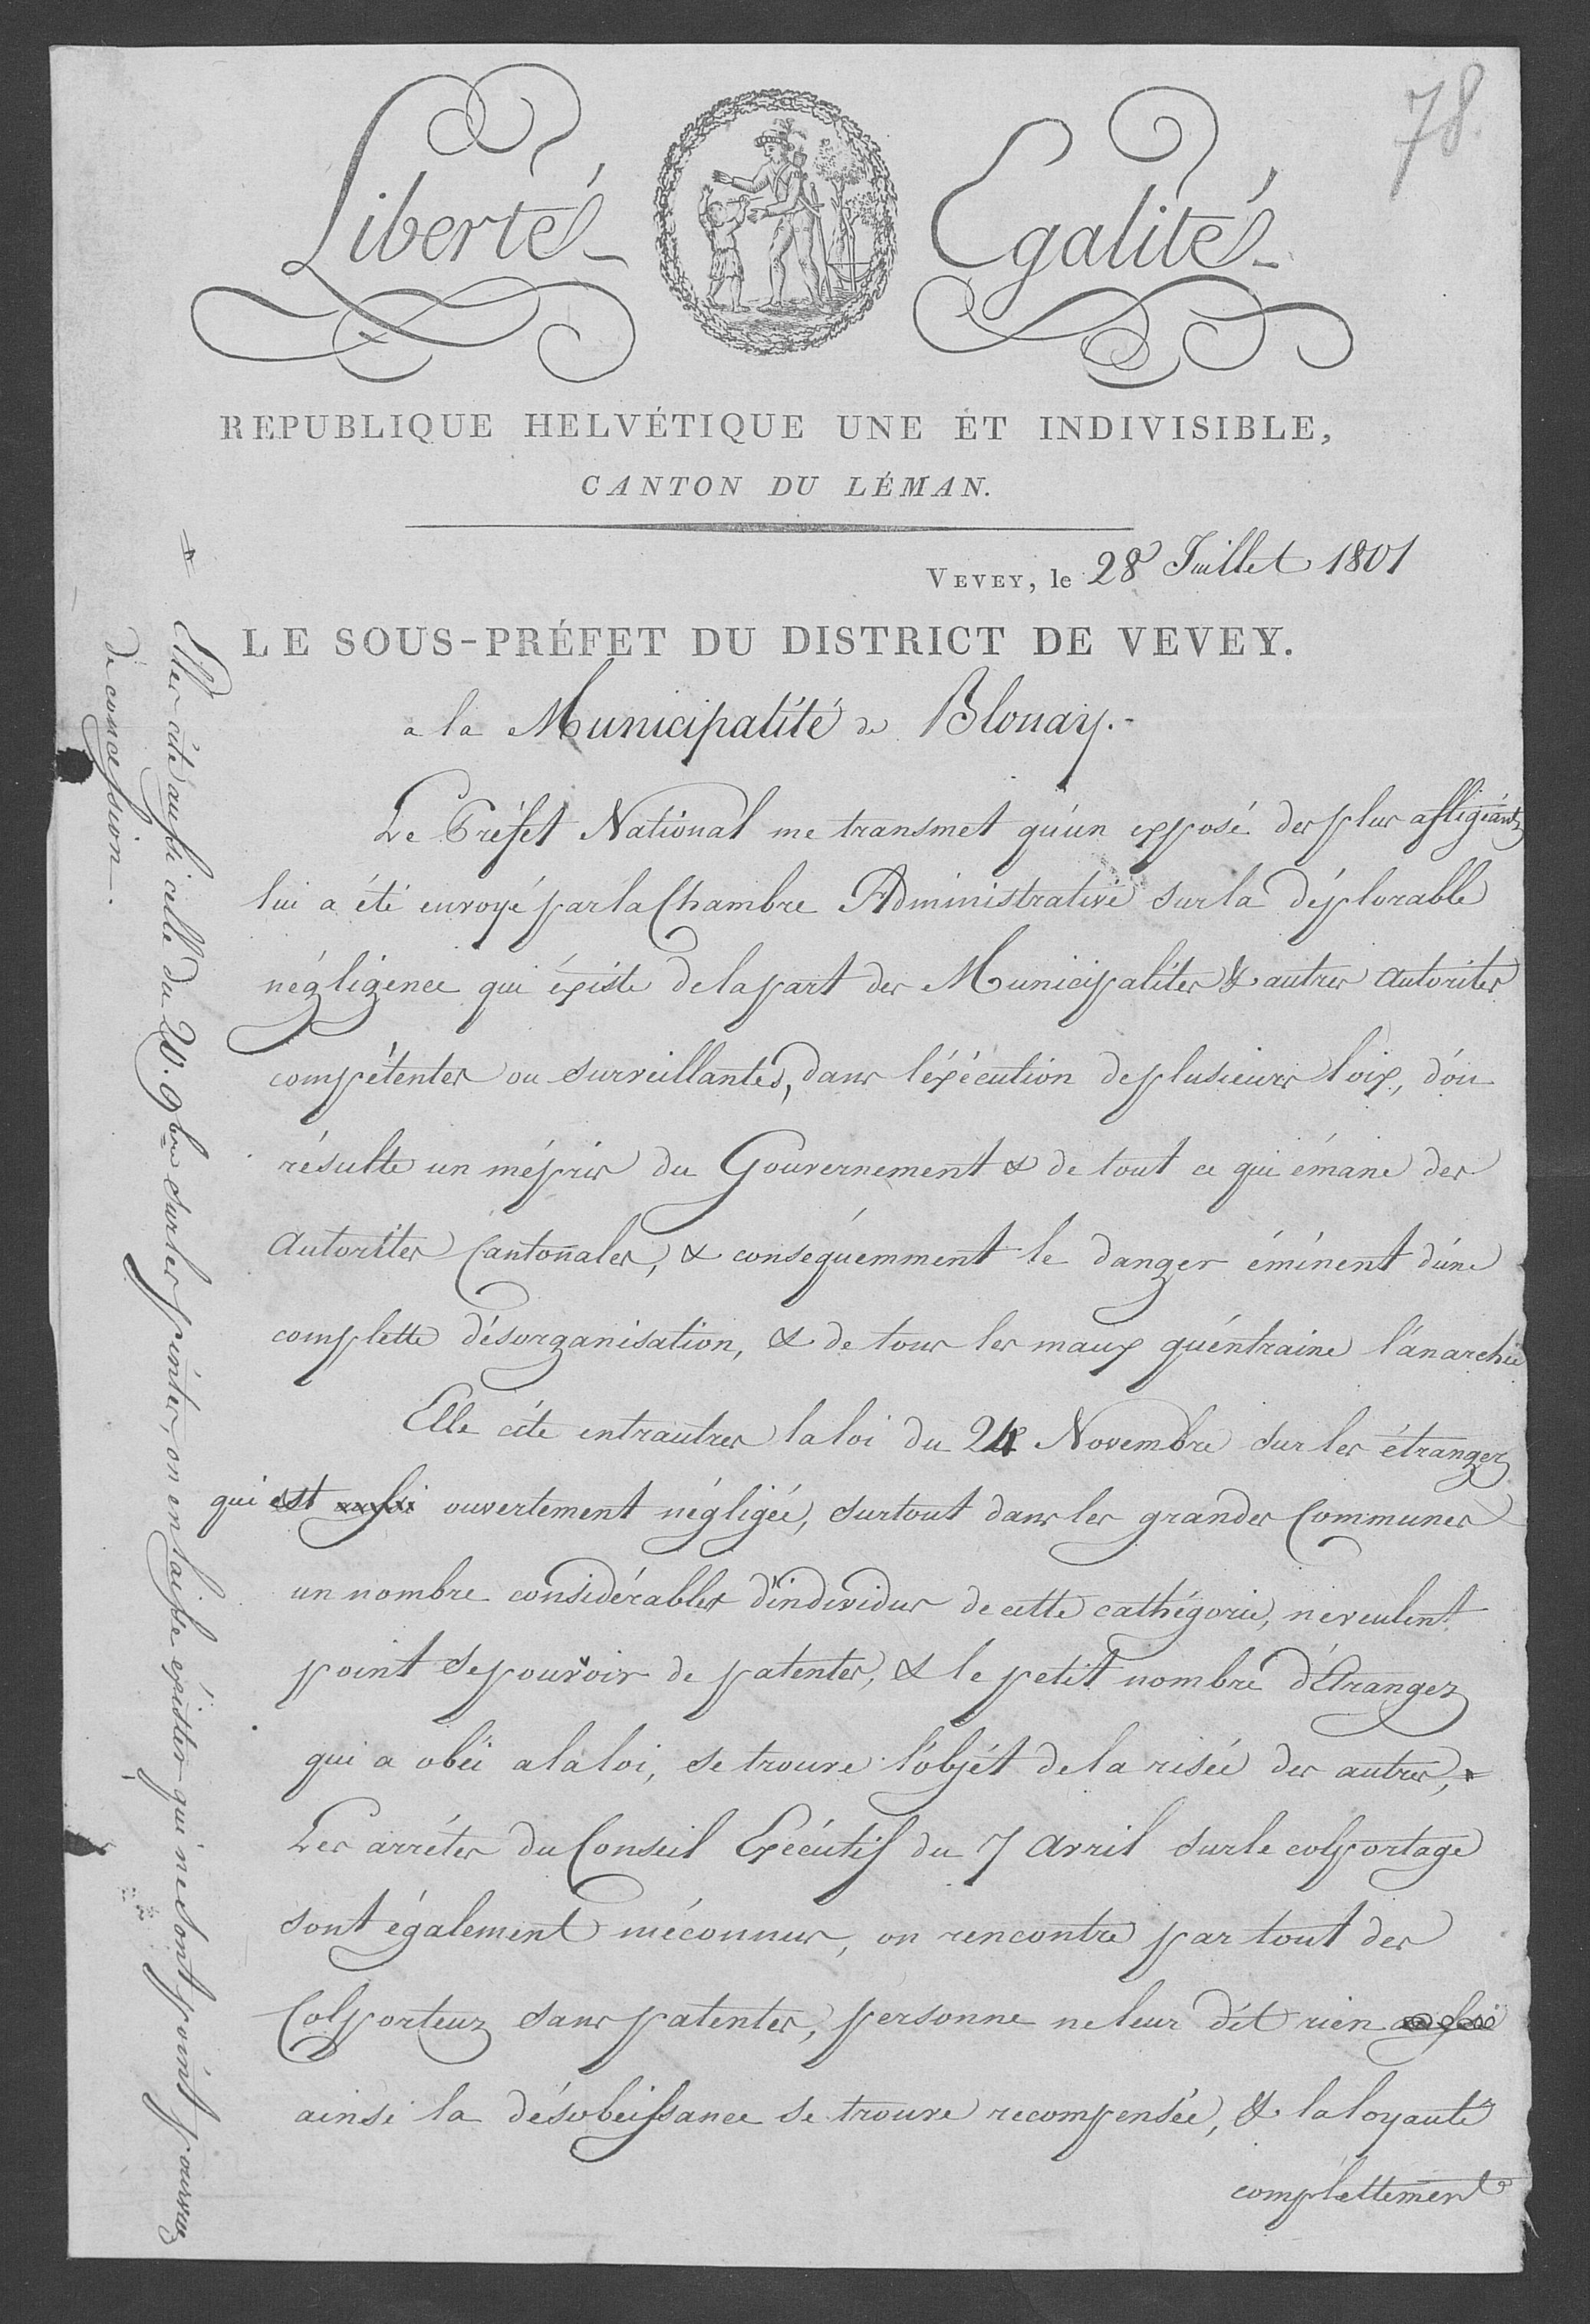 78.
Liberté Egalité
REPUBLIQUE HELVÉTIQUE UNE ÉT INDIVISIBLE,
CANTON DU LÉMAN.
VEVEY, le 28 Juillet 1801
LE SOUS-PRÉFET DU DISTRICT DE VEVEY.
a la Municipalité de Blonay.-
Le Préfet National me transmet qu'un exposé des plus afligéants
lui a été envoyé par la Chambre Administrative sur la déplorable
négligence qui éxiste de la part des Municipalites & autres autorites
compétentes ou surveillantes, dans l'éxécution de plusieurs loix, d'ou
résulte un mépris du Gouvernement & de tout ce qui émane des
autorites Cantonnales, & conséquemment le danger éminent d'une
complette désorganisation, & de tous les maux qu'entraine l'anarchie
Elle cite entrautres la loi du 24 Novembre sur les étrangers
qui est aussi ouvertement négligée, surtout dans les grandes Communes
un nombre considérables d'individus de cette cathégorie, ne veulent
point se pourvoir de patentes, & le petit nombre d'Etrangers
qui a obéi a la loi, se trouve l'objét de la risée des autres,
Les arrétes du Conseil Exécutif du 7 Avril sur le colportage
sont également méconnus, on rencontre par tout des
Colporteurs sans patentes, personne ne leur dit rien
ainsi la désobeissance se trouve recompensée, & la loyauté
complettement
Elles cite aussi celle du 20. 9bre sur les pintes, on en laisse éxister qui ne sont point pourvues
de concession.